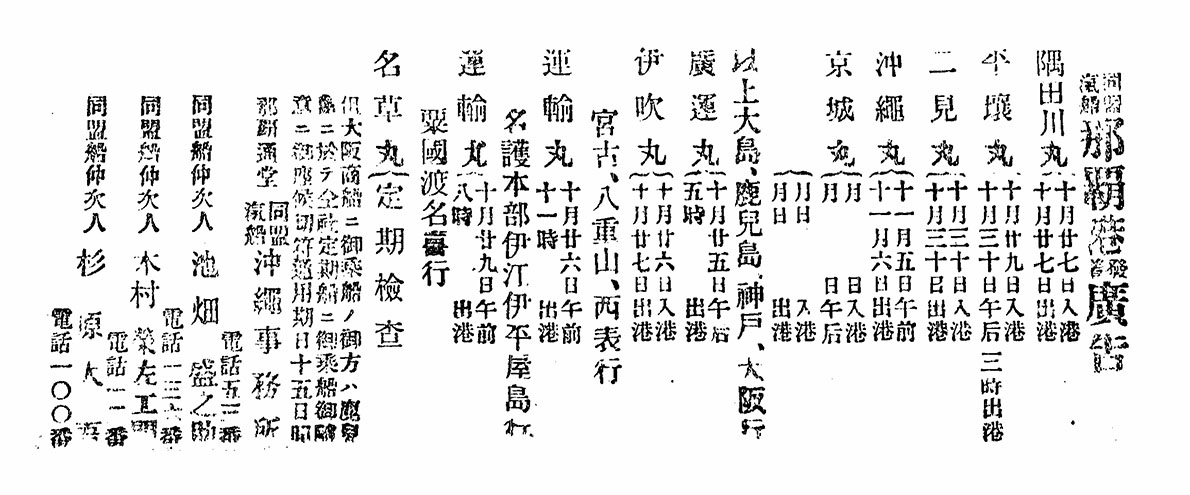 同盟汽船 那覇港發着廣告
隅田川丸 十月廿七日入港
十月廿七日出港
平壤丸 十月廿九日入港
十月三十日午后三時出港
二見丸 十月三十日入港
十月三十日出港
沖繩丸 十一月五日午前
十一月六日出港
京城丸 月 日入港
月 日午后
月日 入港
月日 出港
以上大島、鹿兒島、神戸、大阪行
廣運丸 十月廿五日午后
五時 出港
伊吹丸 十月廿六日入港
十月廿七日出港
宮古、八重山、西表行
運輸丸 十月廿六日午前
十一時 出港
名護本部伊江伊平屋島行
運輸丸 十月廿九日午前
八時 出港
粟國渡名喜行
名草丸 定期檢査
但大阪商船ニ御乘船ノ御方ハ鹿兒
島ニ於テ全社定期船ニ御乘船御
意ニ御座候切符通用期日十五日間
那覇通堂
同盟汽船 沖繩事務所
電話五三番
同盟船仲次人 池畑盛之助
電話一三六番
同盟船仲次人 木村榮左エ門
電話一一番
同盟船仲次人 杉原
電話一〇〇番